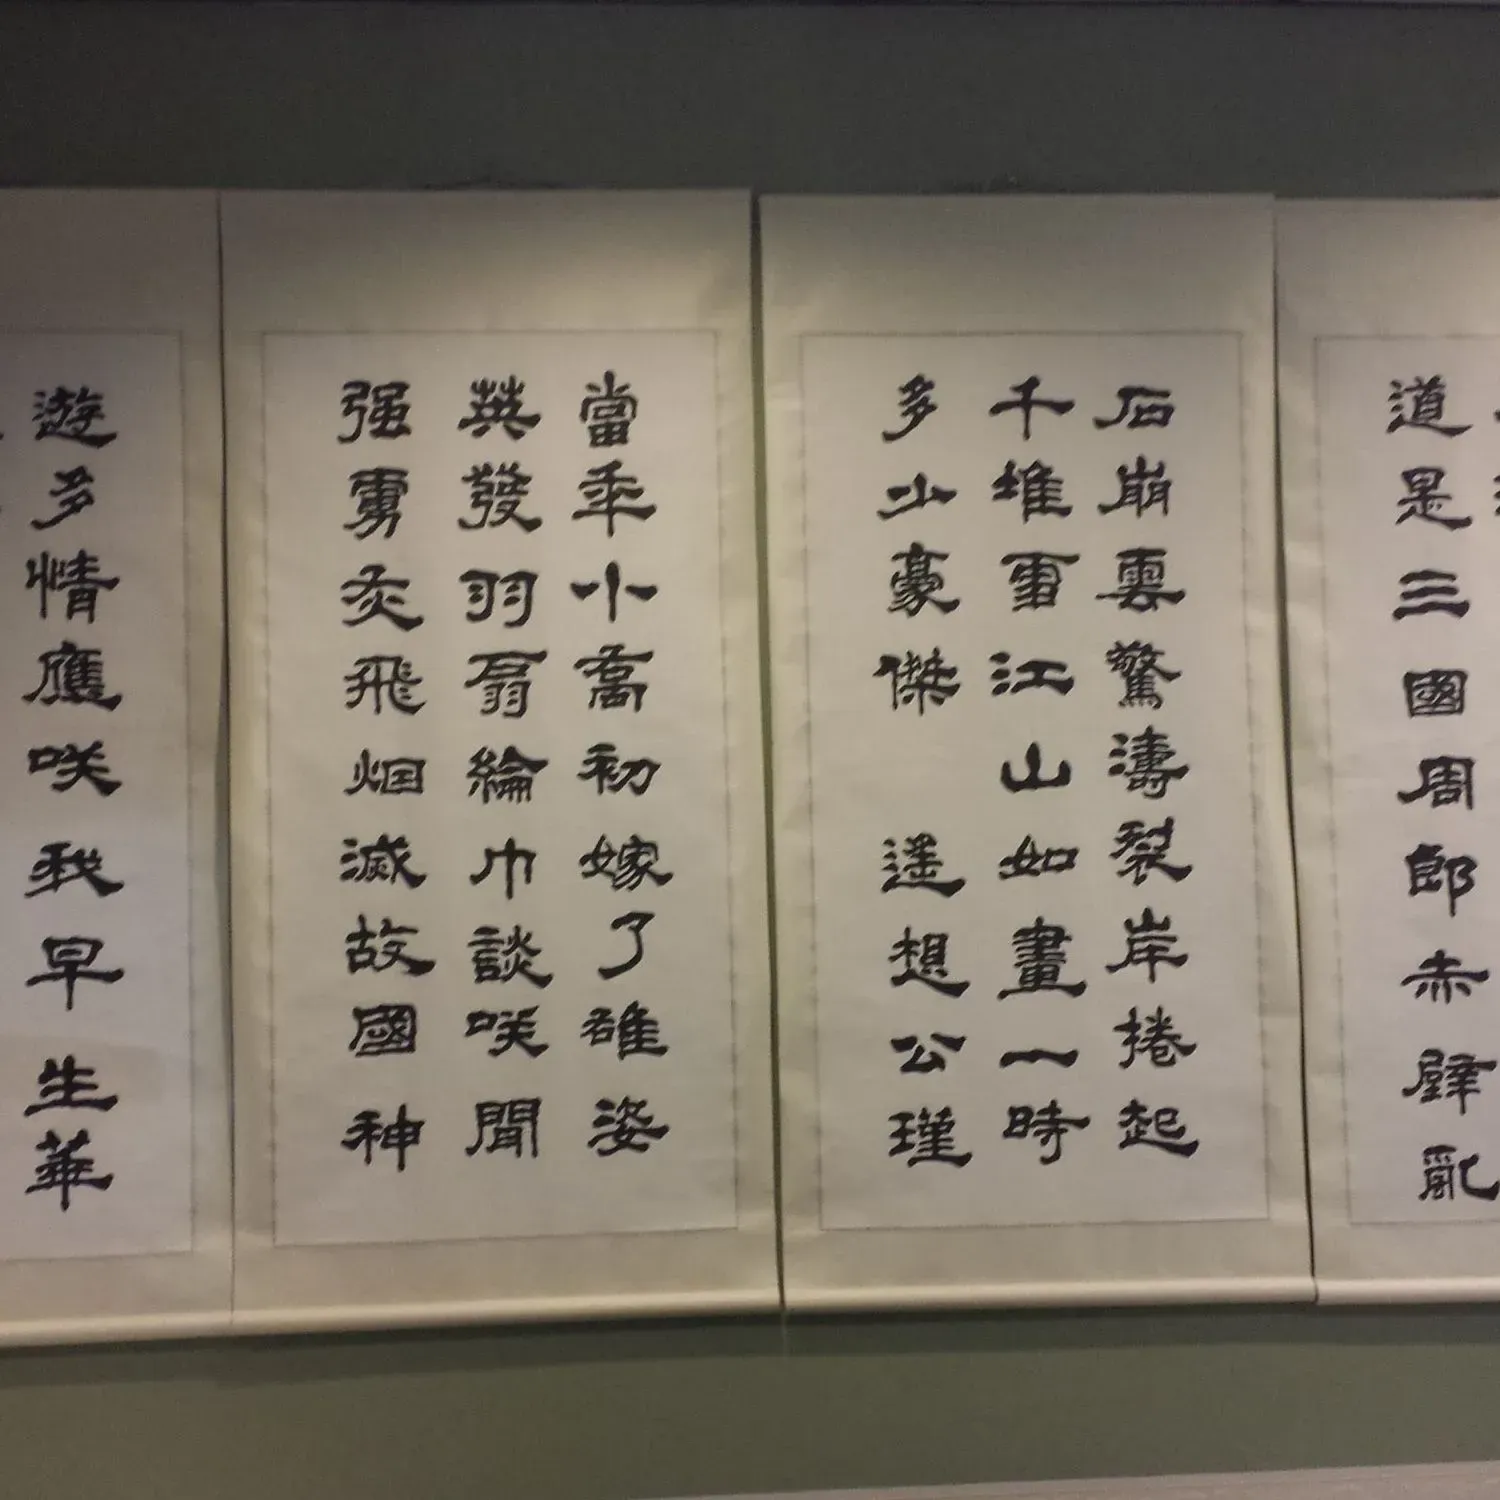 道是三國周郎赤壁亂
石崩雲驚濤裂岸捲起
千堆雪江山如畫一時
多少豪傑 遥想公瑾
當年小喬初嫁了雄姿
英發羽扇綸巾談咲間
强虜灰飛烟滅故國神
遊多情應咲我早生華